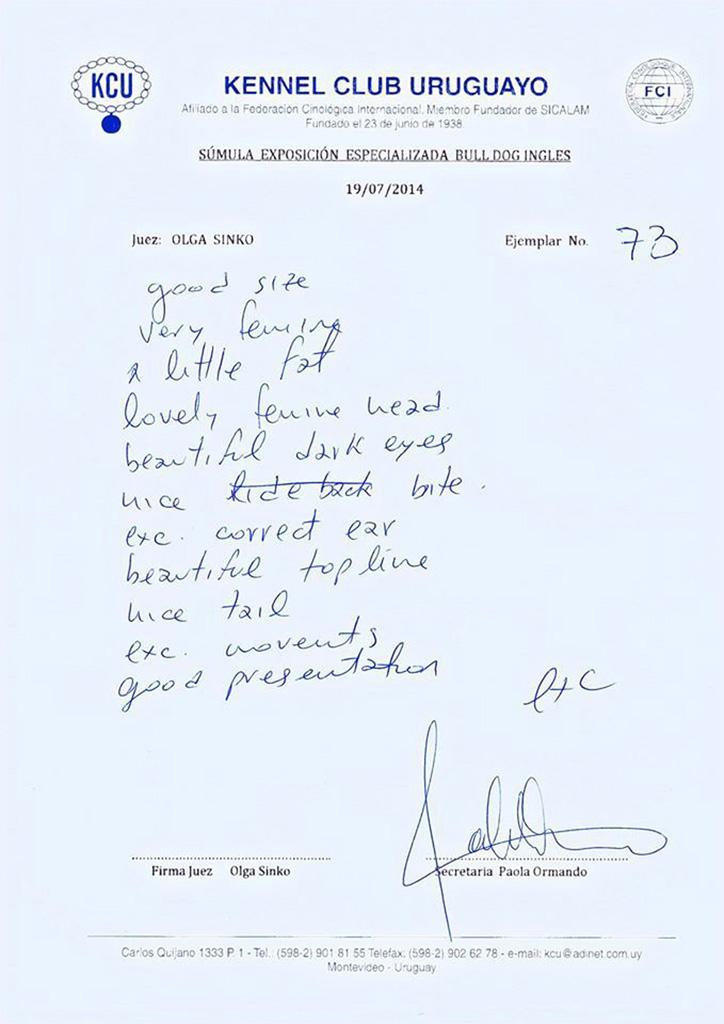 KCU
KENNEL CLUB URUGUAYO
Afiliado a la Federación Cinológica Internacional, Miembro Fundador de SICALAM
Fundado el 23 de junio de 1938
FCI
SÚMULA EXPOSICIÓN ESPECIALIZADA BULL DOG INGLES
19/07/2014
Juez: OLGA SINKO
Ejemplar No. 73
good size
very femine
a little fat
lovely femine head.
beautiful dark eyes
nice bite.
exc. correct ear
beautiful topline
nice tail
exc. movents
good presentation
exc
Firma Juez Olga Sinko
Secretaria Paola Ormando
Carlos Quijano 1333 P. 1 - Tel.: (598-2) 901 81 55 Telefax: (598-2) 902 62 78 - e-mail: kcu@adinet.com.uy
Montevideo - Uruguay